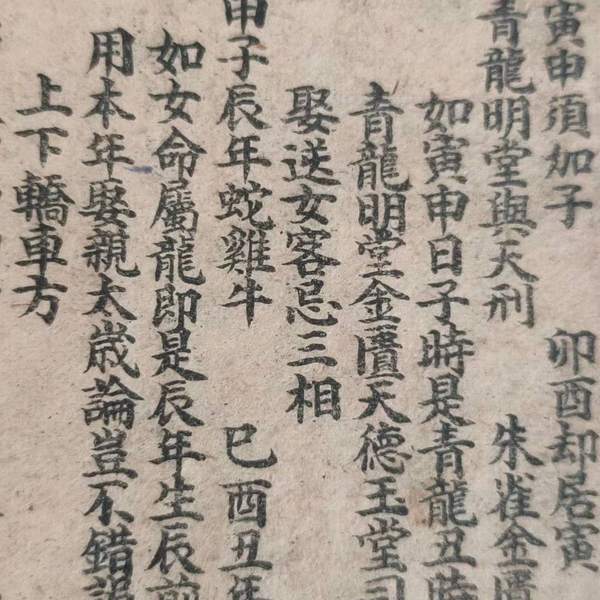 寅申須加子 卯酉却居寅
青龍明堂與天刑 朱雀金匱
如寅申日子時是青龍丑時
青龍明堂金匱天德玉堂司
娶送女客忌三相
申子辰年蛇雞牛 巳酉丑年
如女命屬龍即是辰年生辰前
用本年娶親太歲論豈不錯誤
上下轎車方